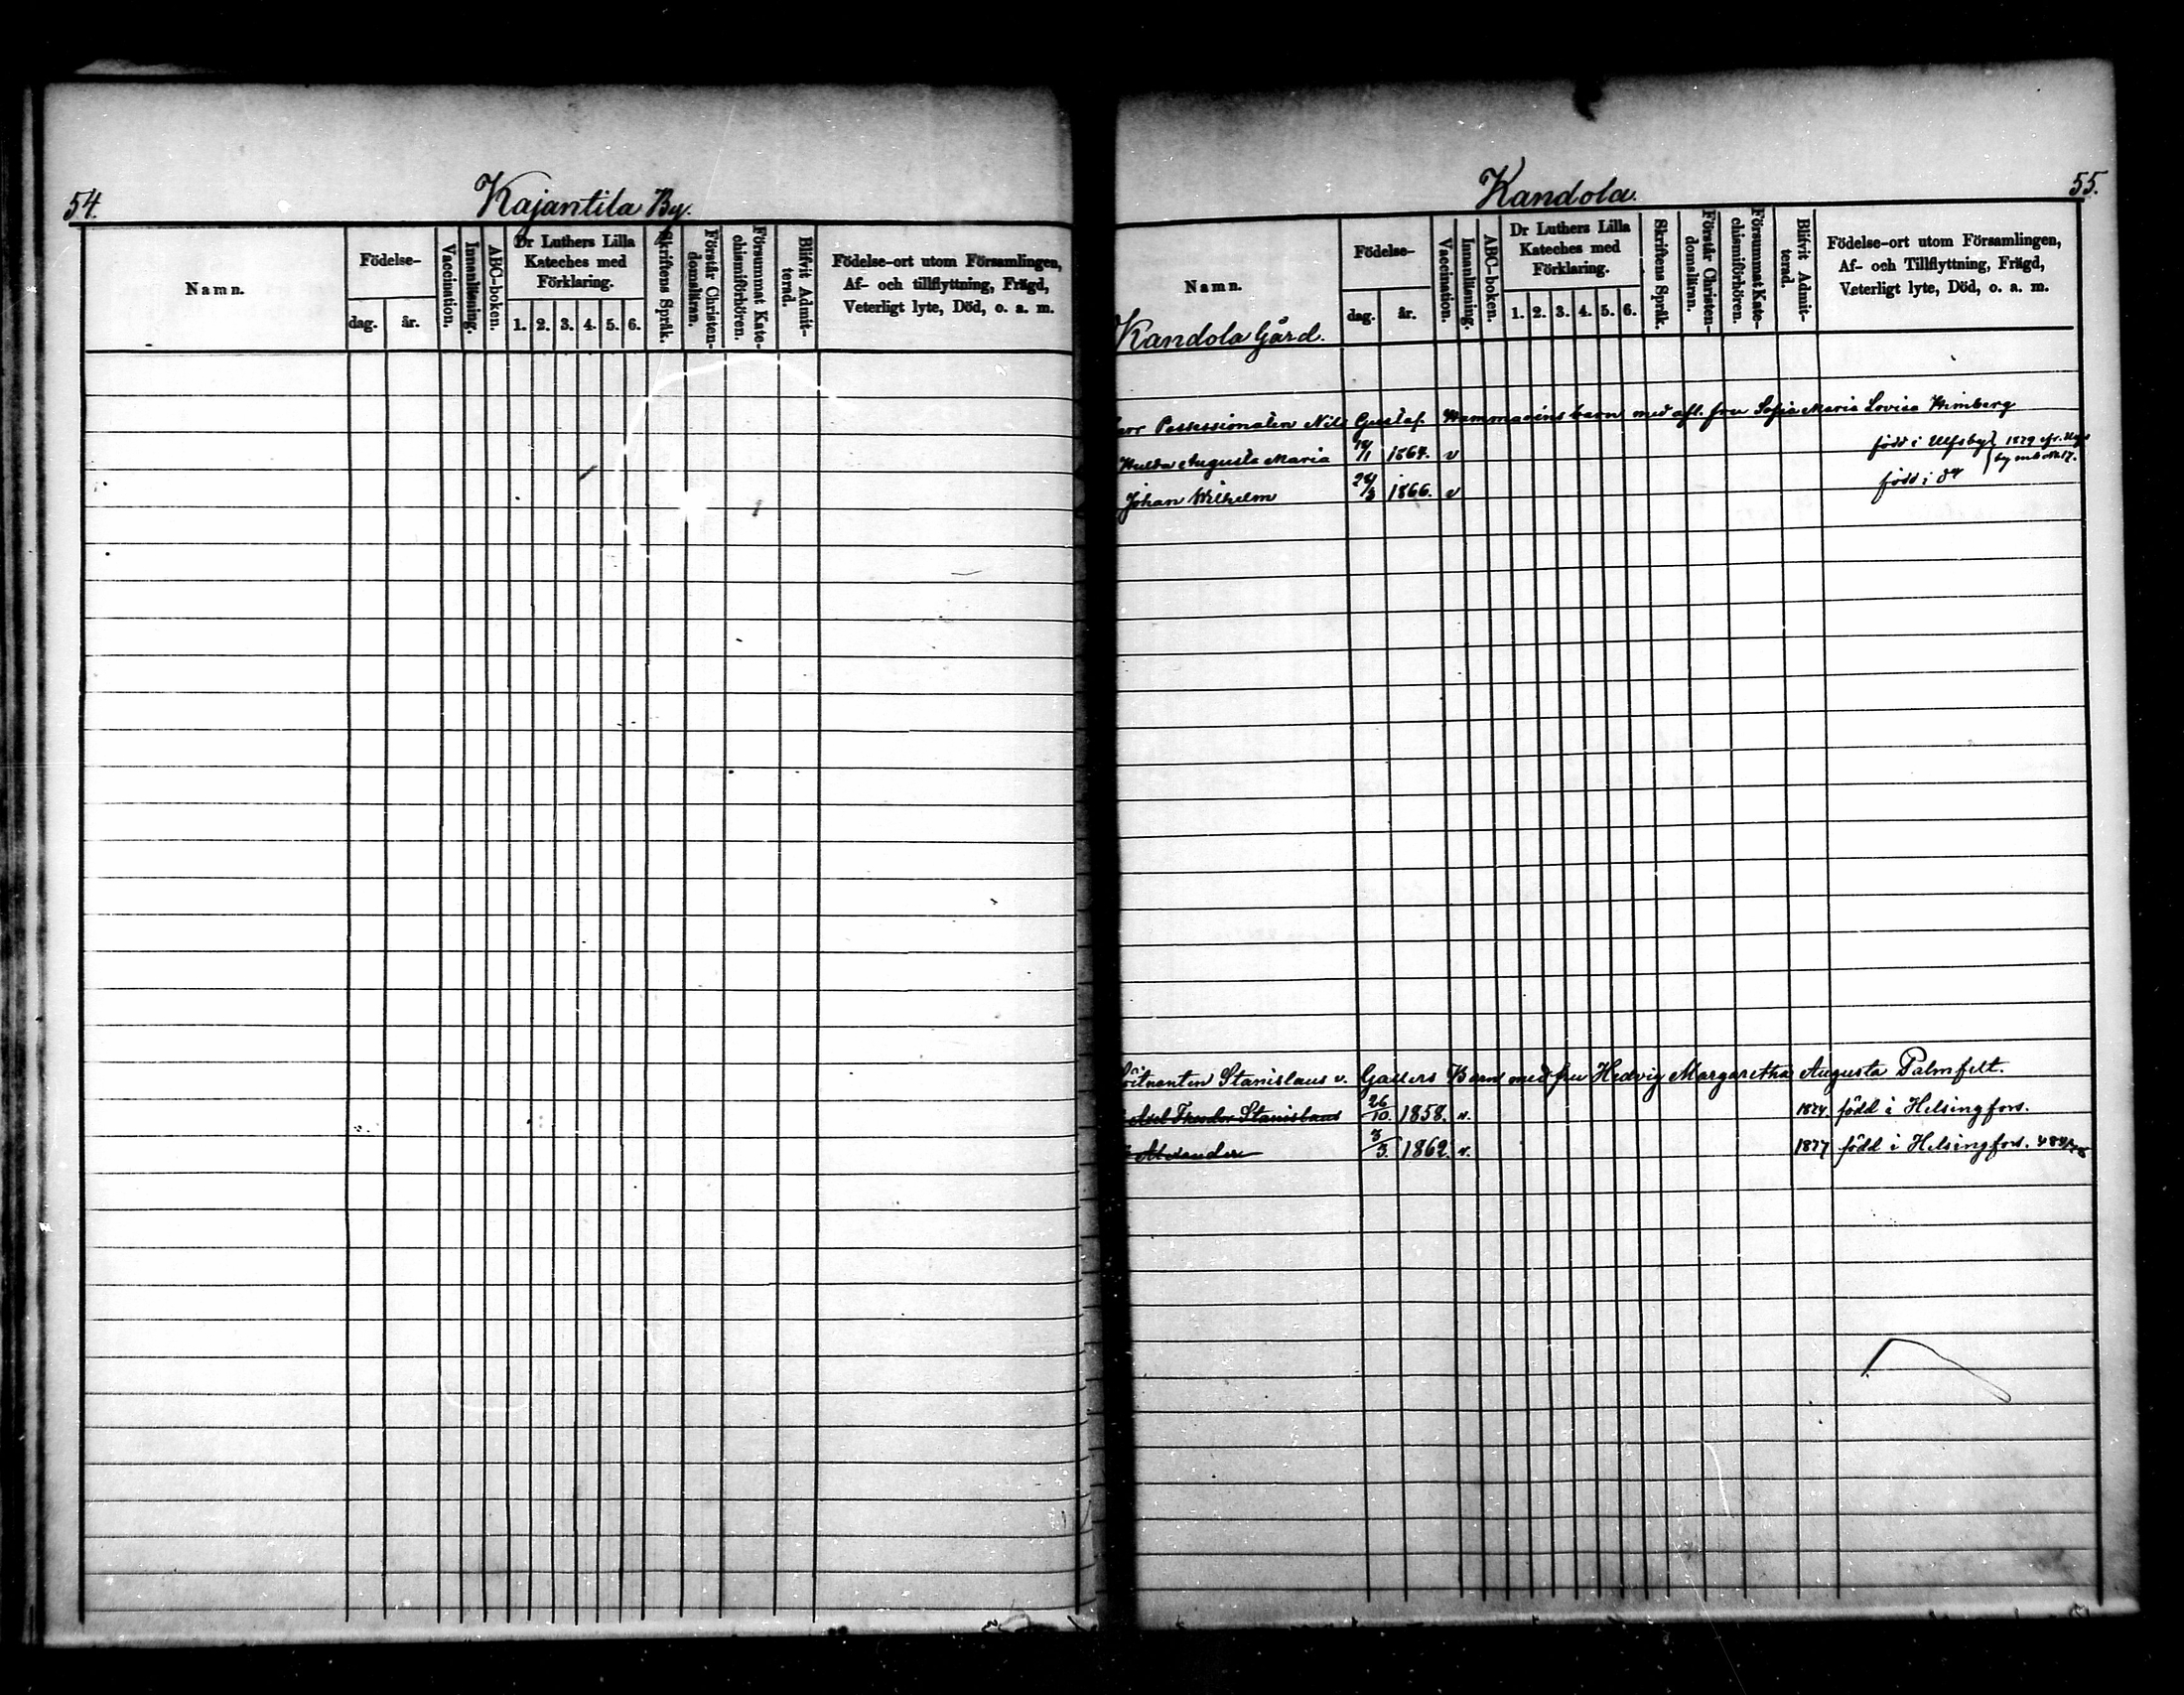 54.
Kajantila By.
Namn.
Födelse-
dag.
år.
Vaccination.
Innanläsning.
ABC-boken.
Dr Luthers Lilla
Kateches med
Förklaring.
1. 2. 3. 4. 5. 6.
Skriftens Språk.
Förstår Christen-
domsläran.
Försummat Kate-
chismiförhören.
Blifvit Admit-
terad.
Födelse-ort utom Församlingen,
Af- och tillflyttning, Frägd,
Veterligt lyte, Död, o. a. m.
Kandola.
55.
Namn.
Kandola Gård.
Födelse-
dag.
år.
Vaccination.
Innanläsning.
ABC-boken.
Dr Luthers Lilla
Kateches med
Förklaring.
1. 2. 3. 4. 5. 6.
Skriftens Språk.
Förstår Christen-
domsläran.
Försummat Kate-
chismiförhören.
Blifvit Admit-
terad.
Födelse-ort utom Församlingen,
Af- och Tillflyttning, Frägd,
Veterligt lyte, Död, o. a. m.
Possessionaten Nils Gustaf barn med afl. fru Sofia Maria Lovisa Wimberg
Hulda Augusta Maria 1864. v född i Ulfsby 1879
Johan Wilhelm 1866. v född i do
Stanislaus v. Gallers Barn med fru Hedvig Margaretha Augusta Palmfelt.
Axel Theodor Stanislaus 26/10. 1858. v. 1874 född i Helsingfors.
Alexander 3/3. 1862. v. 1877 född i Helsingfors.